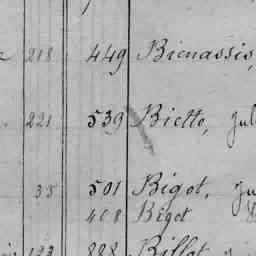 218 449 Bienassis,
221 539 Biette, Jul
35 501 Bigot, Ju
408 Bigot
122 888 Billot